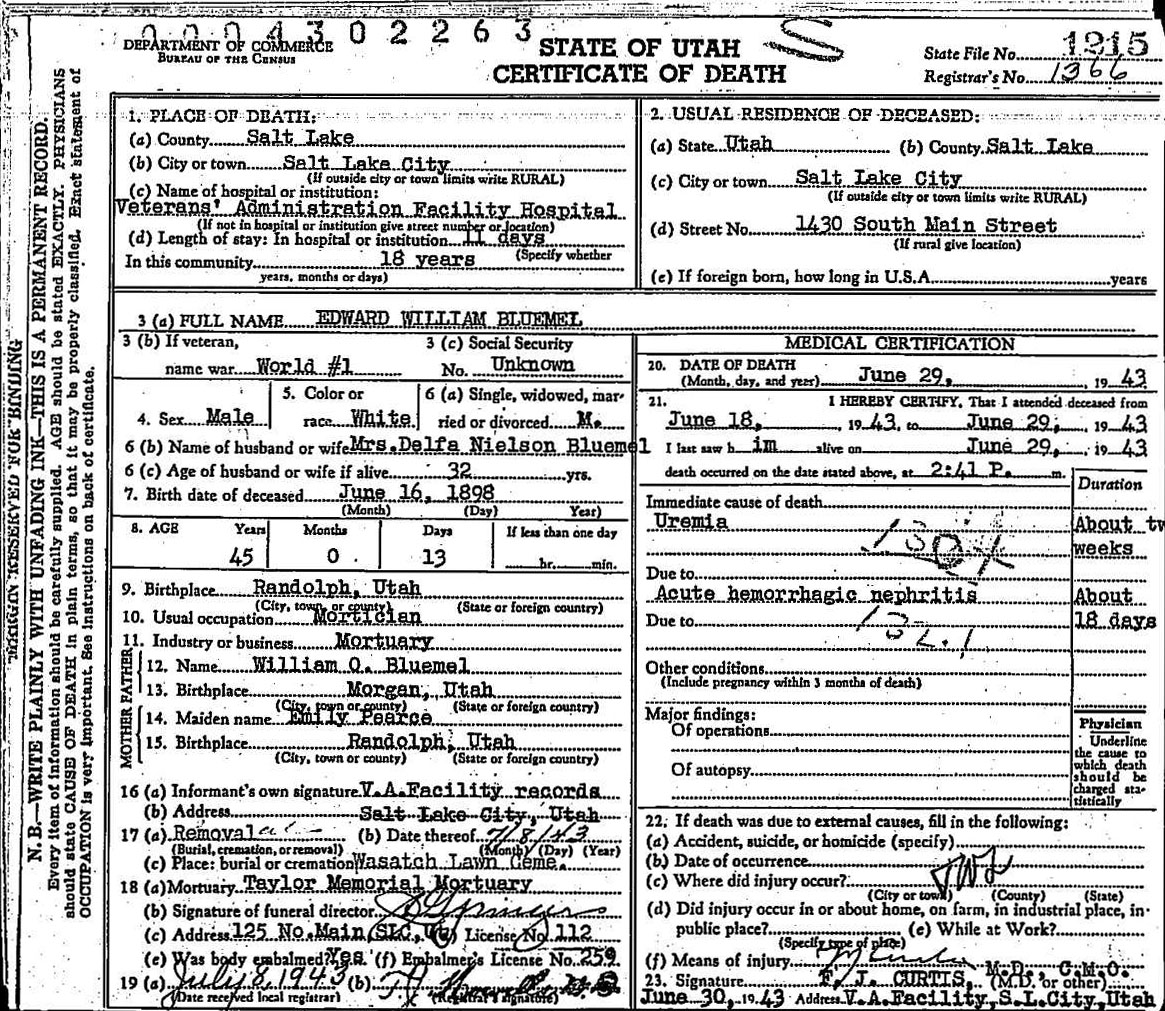 0004302263
DEPARTMENT OF COMMERCE
BUREAU OF THE CENSUS
STATE OF UTAH
CERTIFICATE OF DEATH
State File No. 1215
Registrar's No. 1366
MARGIN RESERVED FOR BINDING
N. B.—WRITE PLAINLY WITH UNFADING INK—THIS IS A PERMANENT RECORD.
Every item of information should be carefully supplied. AGE should be stated EXACTLY. PHYSICIANS
should state CAUSE OF DEATH in plain terms, so that it may be properly classified. Exact statement of
OCCUPATION is very important. See instructions on back of certificate.
1. PLACE OF DEATH:
(a) County Salt Lake
(b) City or town Salt Lake City
(If outside city or town limits write RURAL)
(c) Name of hospital or institution:
Veterans' Administration Facility Hospital
(If not in hospital or institution give street number or location)
(d) Length of stay: In hospital or institution 11 days
(Specify whether
In this community 18 years
years, months or days)
2. USUAL RESIDENCE OF DECEASED:
(a) State Utah (b) County Salt Lake
(c) City or town Salt Lake City
(If outside city or town limits write RURAL)
(d) Street No. 1430 South Main Street
(If rural give location)
(e) If foreign born, how long in U.S.A. years
3 (a) FULL NAME EDWARD WILLIAM BLUEMEL
3 (b) If veteran,
name war World #1
3 (c) Social Security
No. Unknown
4. Sex Male
5. Color or
race White
6 (a) Single, widowed, mar-
ried or divorced M.
6 (b) Name of husband or wife Mrs. Delfa Nielson Bluemel
6 (c) Age of husband or wife if alive 32 yrs.
7. Birth date of deceased June 16, 1898
(Month) (Day) Year)
8. AGE Years Months Days If less than one day
45 0 13 hr. min.
9. Birthplace Randolph, Utah
(City, town, or county) (State or foreign country)
10. Usual occupation Mortician
11. Industry or business Mortuary
FATHER
12. Name William O. Bluemel
13. Birthplace Morgan, Utah
(City, town or county) (State or foreign country)
MOTHER
14. Maiden name Emily Pearce
15. Birthplace Randolph, Utah
(City, town or county) (State or foreign country)
16 (a) Informant's own signature V.A. Facility records
(b) Address Salt Lake City, Utah
17 (a) Removal (b) Date thereof 7/8/43
(Burial, cremation, or removal) (Month) (Day) (Year)
(c) Place: burial or cremation Wasatch Lawn Ceme.
18 (a) Mortuary Taylor Memorial Mortuary
(b) Signature of funeral director
(c) Address 125 No. Main, SLC, Ut) License No. 112
(e) Was body embalmed? Yes (f) Embalmer's License No. 259
19 (a) July 8, 1943 (b)
(Date received local registrar) (Registrar's signature)
MEDICAL CERTIFICATION
20. DATE OF DEATH
(Month, day, and year) June 29, , 19 43
21. I HEREBY CERTIFY, That I attended deceased from
June 18, , 19 43, to June 29, , 19 43
I last saw h im alive on June 29, , 19 43
death occurred on the date stated above, at 2:41 P. m.
Duration
Immediate cause of death
Uremia About tw
weeks
Due to
Acute hemorrhagic nephritis About
Due to 18 days
132.1
Other conditions
(Include pregnancy within 3 months of death)
Major findings:
Of operations
Of autopsy
Physician
Underline
the cause to
which death
should be
charged sta-
tistically
22. If death was due to external causes, fill in the following:
(a) Accident, suicide, or homicide (specify)
(b) Date of occurrence
(c) Where did injury occur?
(City or town) (County) (State)
(d) Did injury occur in or about home, on farm, in industrial place, in
public place? (e) While at Work?
(Specify type of place)
(f) Means of injury
23. Signature F. J. CURTIS, M.D., C.M.O.
(M.D. or other)
June 30, 19 43 Address V.A. Facility, S.L.City, Utah